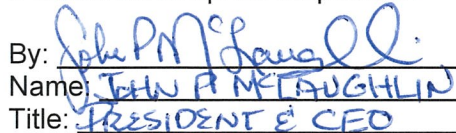 By: John P McLaughlin
Name: JOHN P MCLAUGHLIN
Title: PRESIDENT & CEO